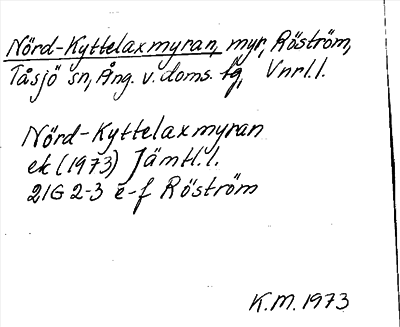 Nörd-Kyttelaxmyran, myr, Röström,
Tåsjö sn, Ång. v. doms. tg, Vnrl.l.
Nörd-Kyttelaxmyran
ek (1973) Jämtl.l.
21G 2-3 e-f Röström
K.M. 1973